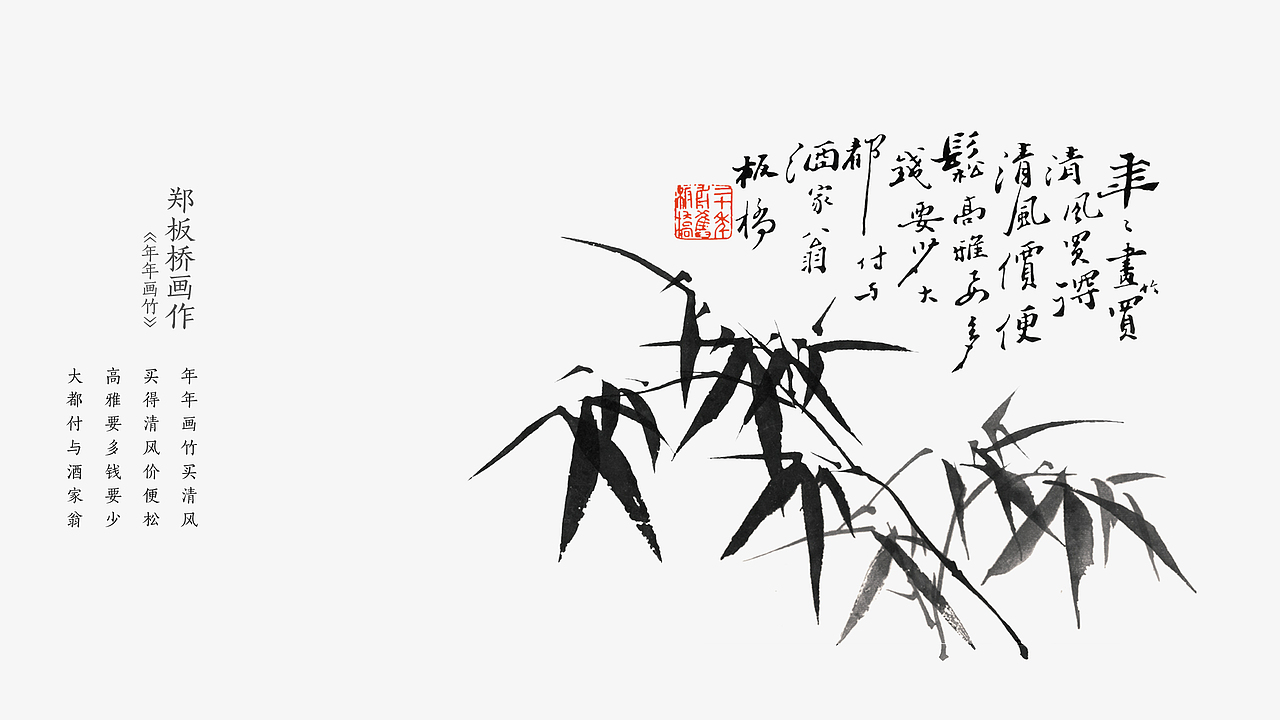 年〻畫竹買
清風買得
清風價便
鬆高雅要多
錢要少大
都付与
酒家翁
板橋
二十年
前舊
板橋
郑板桥画作
《年年画竹》
年年画竹买清风
买得清风价便松
高雅要多钱要少
大都付与酒家翁